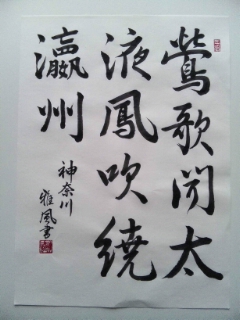 鶯歌聞太
液鳳吹繞
瀛州
神奈川
雅風書